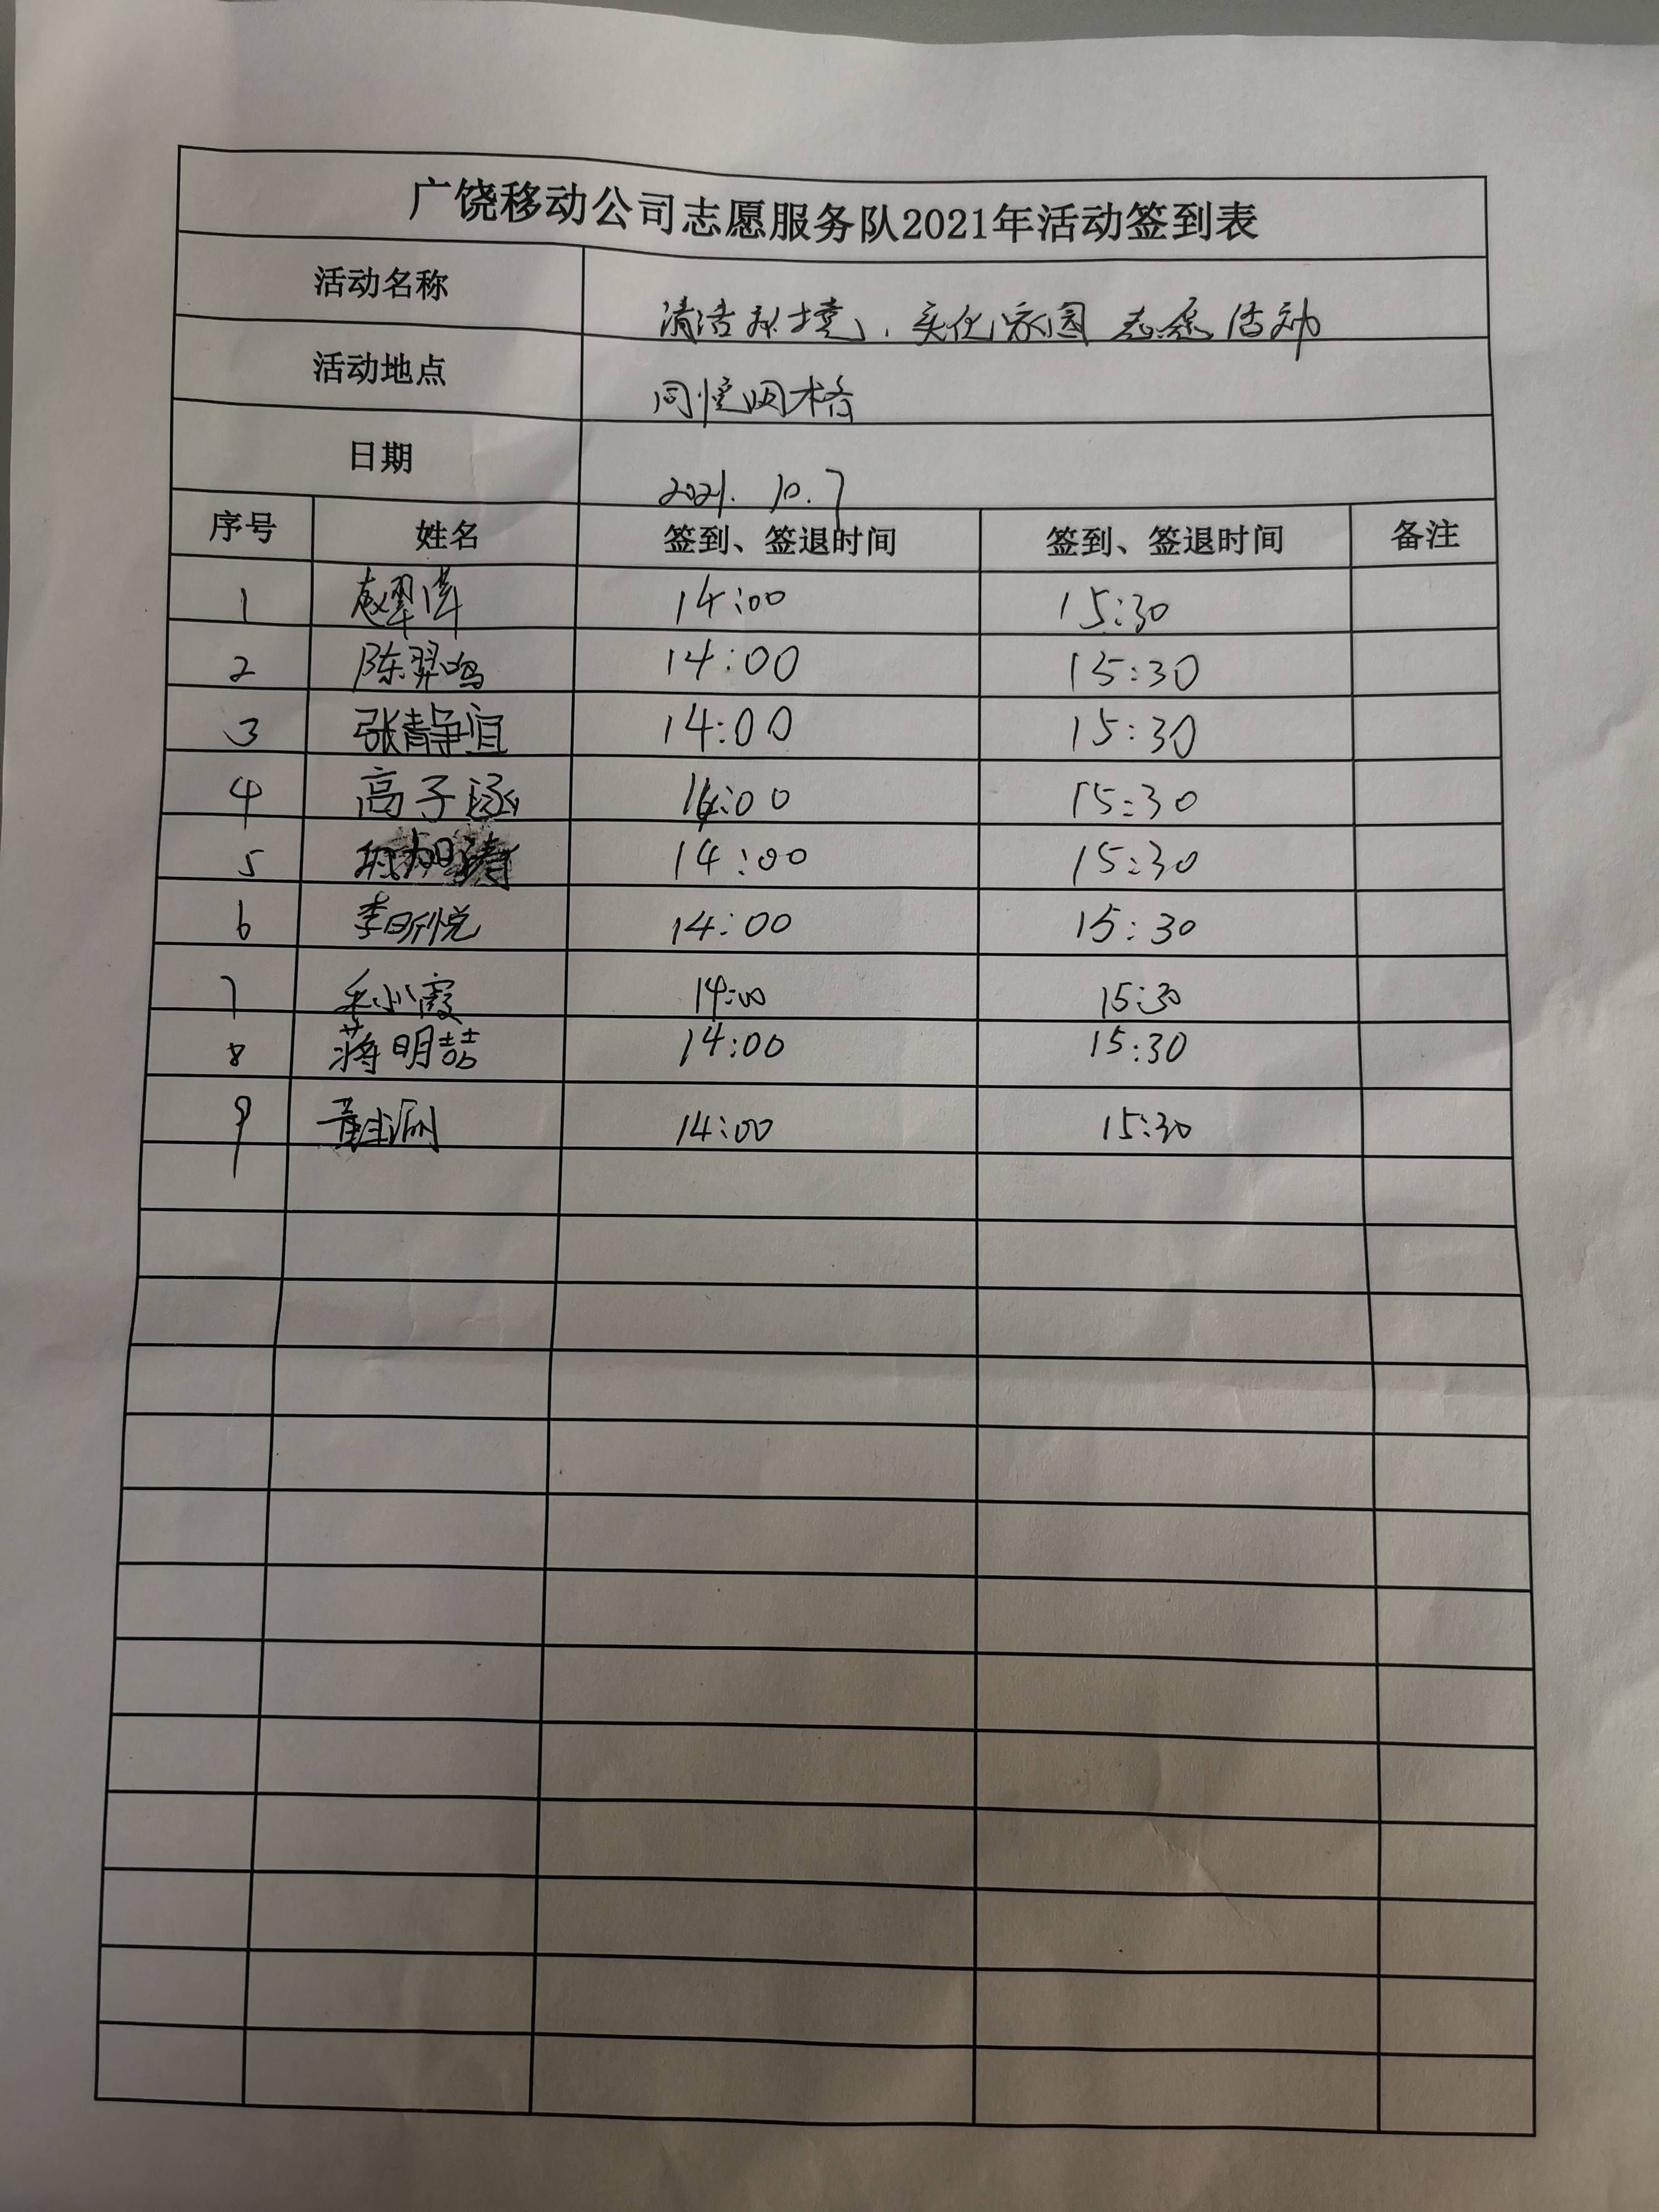 广饶移动公司志愿服务队2021年活动签到表
活动名称 清洁环境,美化家园志愿活动
活动地点 同悦网格
日期 2021.10.7
序号 姓名 签到、签退时间 签到、签退时间 备注
1 14:00 15:30
2 陈羿鸣 14:00 15:30
3 张静宜 14:00 15:30
4 高子涵 14:00 15:30
5 14:00 15:30
6 李昕悦 14:00 15:30
7 小霞 14:00 15:30
8 蒋明喆 14:00 15:30
9 14:00 15:30